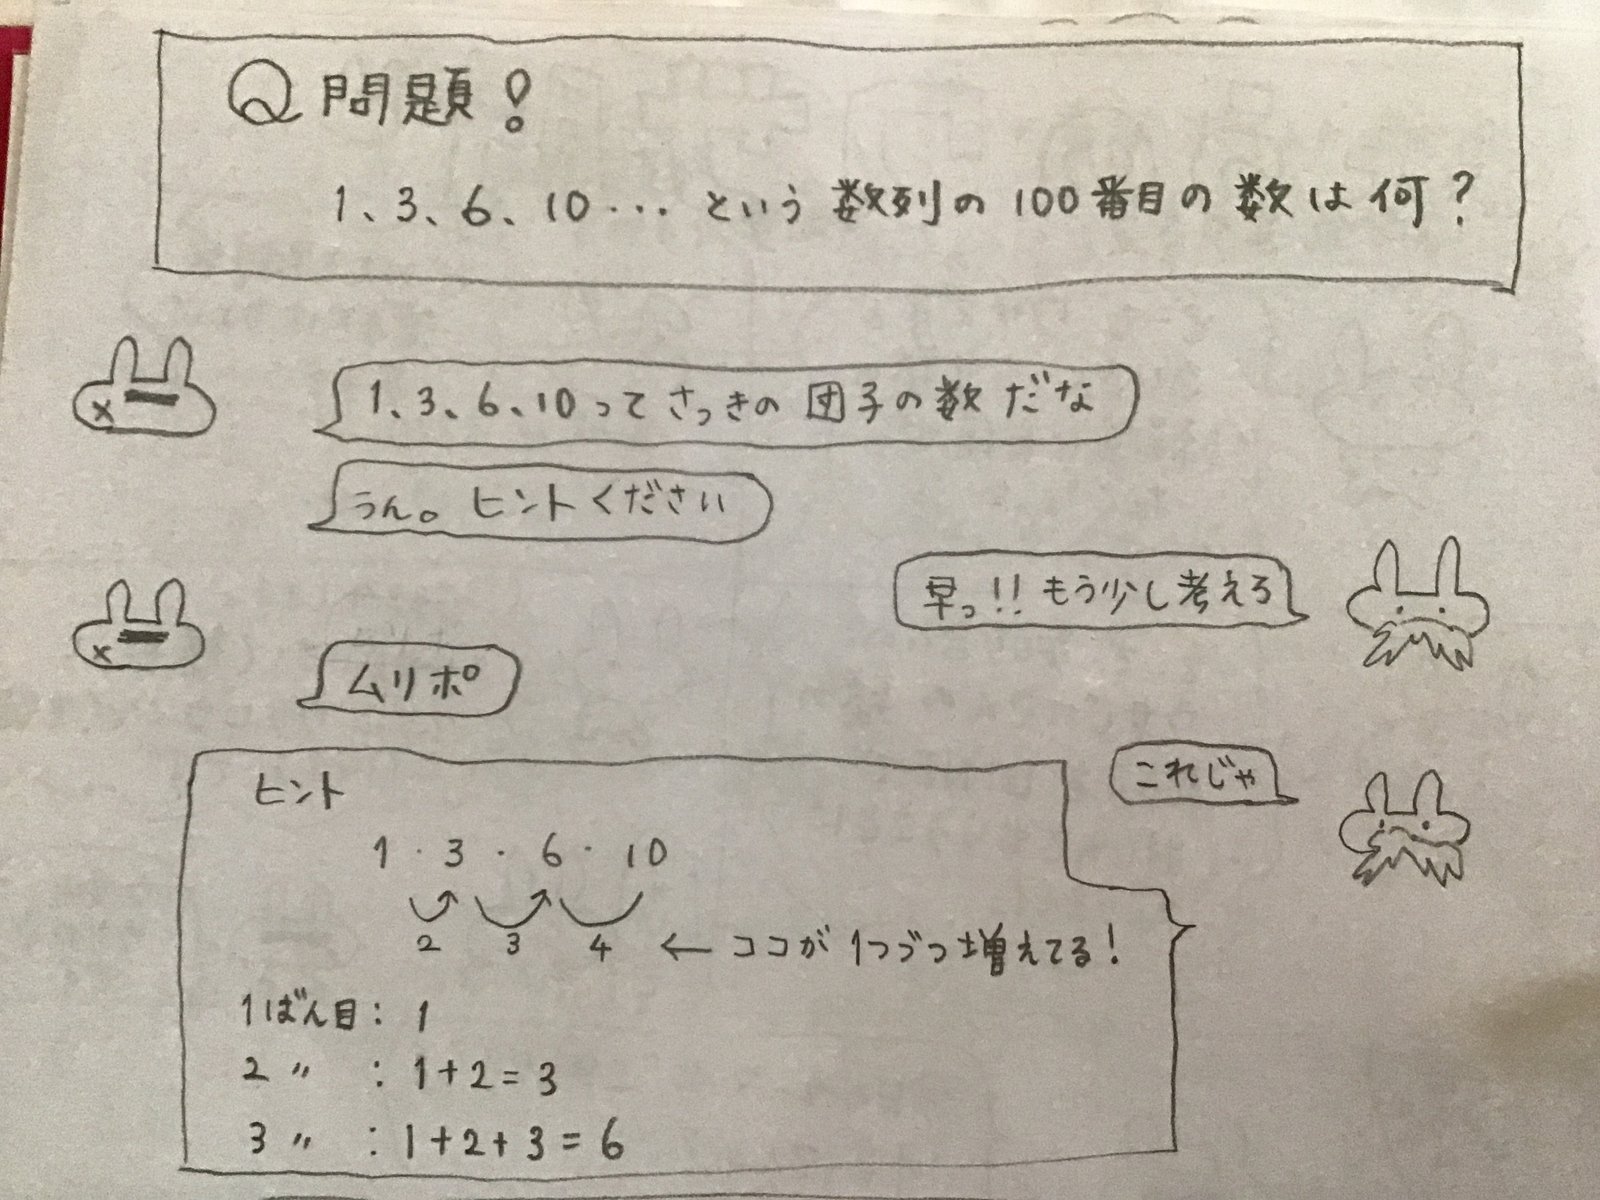 Q 問題!
1、3、6、10・・・という数列の100番目の数は何?
1、3、6、10ってさっきの団子の数だな
うん。ヒントください
早っ!!もう少し考えろ
ムリポ
これじゃ
ヒント
1・3・6・10
2 3 4 ← ココが1つづつ増えてる!
1ばん目: 1
2 〃 : 1+2=3
3 〃 : 1+2+3=6